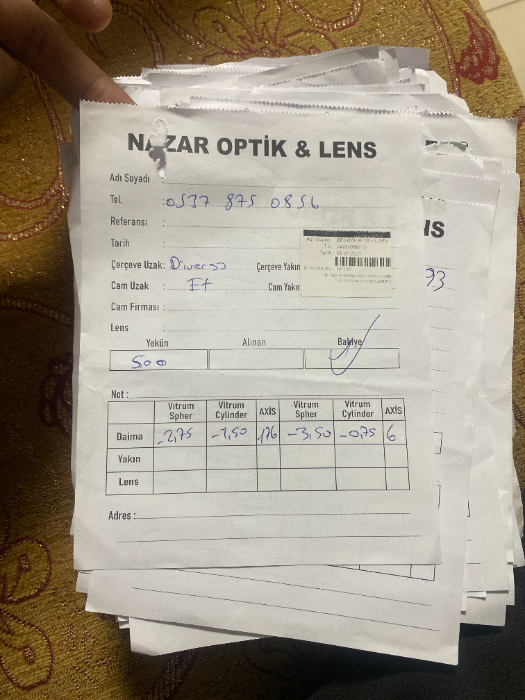 NAZAR OPTİK & LENS
Adı Soyadı :
Tel. : 0537 875 0856
Referansı :
Tarih :
Çerçeve Uzak: Diverso Çerçeve Yakın
Cam Uzak : Ef Cam Yakın
Cam Firması :
Lens :
Yekün Alınan Bakiye
500
Not :
Vitrum Spher Vitrum Cylinder AXİS Vitrum Spher Vitrum Cylinder AXİS
Daima -2,75 -1,50 176 -3,50 -0,75 6
Yakın
Lens
Adres :
NS
93